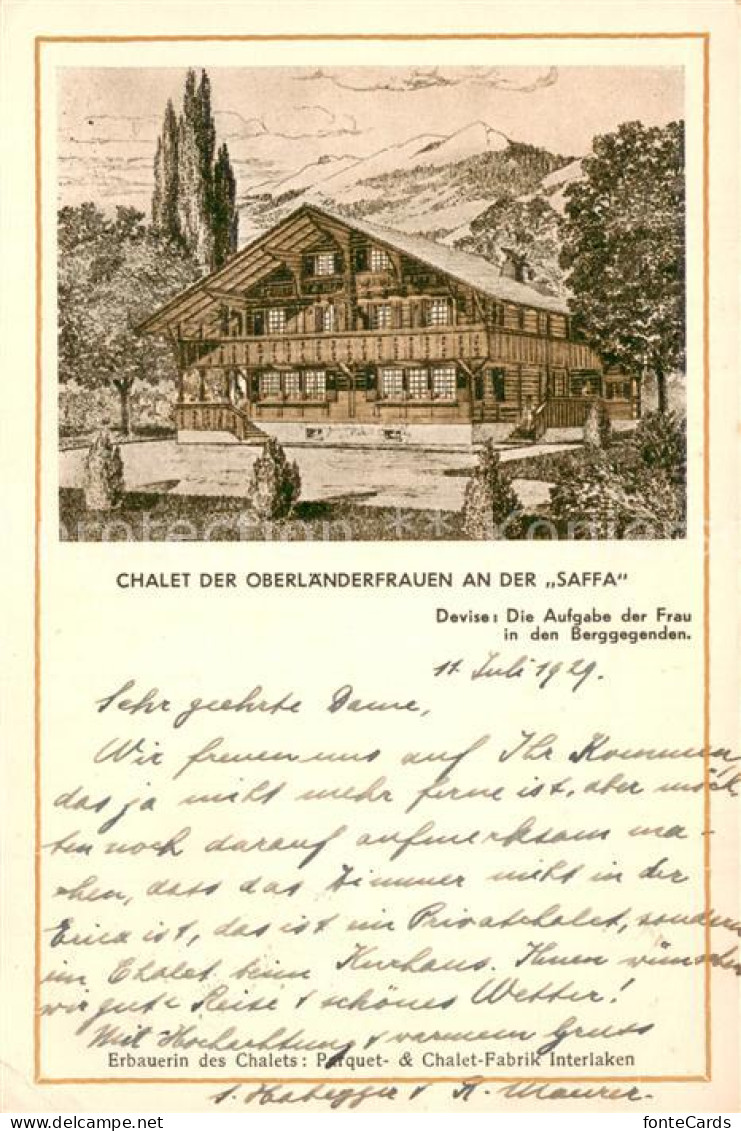 CHALET DER OBERLÄNDERFRAUEN AN DER „SAFFA“
Devise: Die Aufgabe der Frau
in den Berggegenden.
11. Juli 1929.
Sehr geehrte Dame,
Wir freuen uns auf Ihr Kommen,
das ja nicht mehr ferne ist, aber möch
ten noch darauf aufmerksam ma-
chen, dass das Zimmer nicht in der
Erica ist, das ist im Privatchalet, sondern
im Chalet beim Kurhaus. Ihnen wünschen
wir gute Reise & schönes Wetter!
Mit Hochachtung & warmem Gruss
Erbauerin des Chalets: Parquet- & Chalet-Fabrik Interlaken
Habegger & R. Maurer.
protection
fonteCards